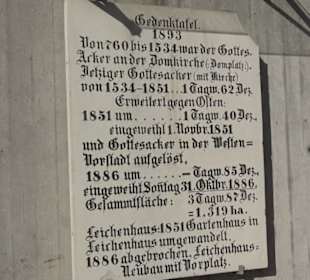 Gedenktafel.
1893
Von 760 bis 1534 war der Gottes-
Acker an der Domkirche (: Domplatz:).
Jetziger Gottesacker (mit Kirche)
von 1534-1851...1 Tagw. 62 Dez.
Erweitert gegen Osten:
1851 um......1 Tagw. 40 Dez.,
eingeweiht 1. Novbr. 1851
und Gottesacker in der Westen=
Vorstadt aufgelöst,
1886 um......-Tagw. 85 Dez.,
eingeweiht Sontag 31. Oktbr. 1886.
Gesammtfläche: 3 Tagw. 87 Dez.
= 1.319 ha.
Leichenhaus: 1851 Gartenhaus in
Leichenhaus umgewandelt,
1886 abgebrochen, Leichenhaus=
Neubau mit Vorplatz.